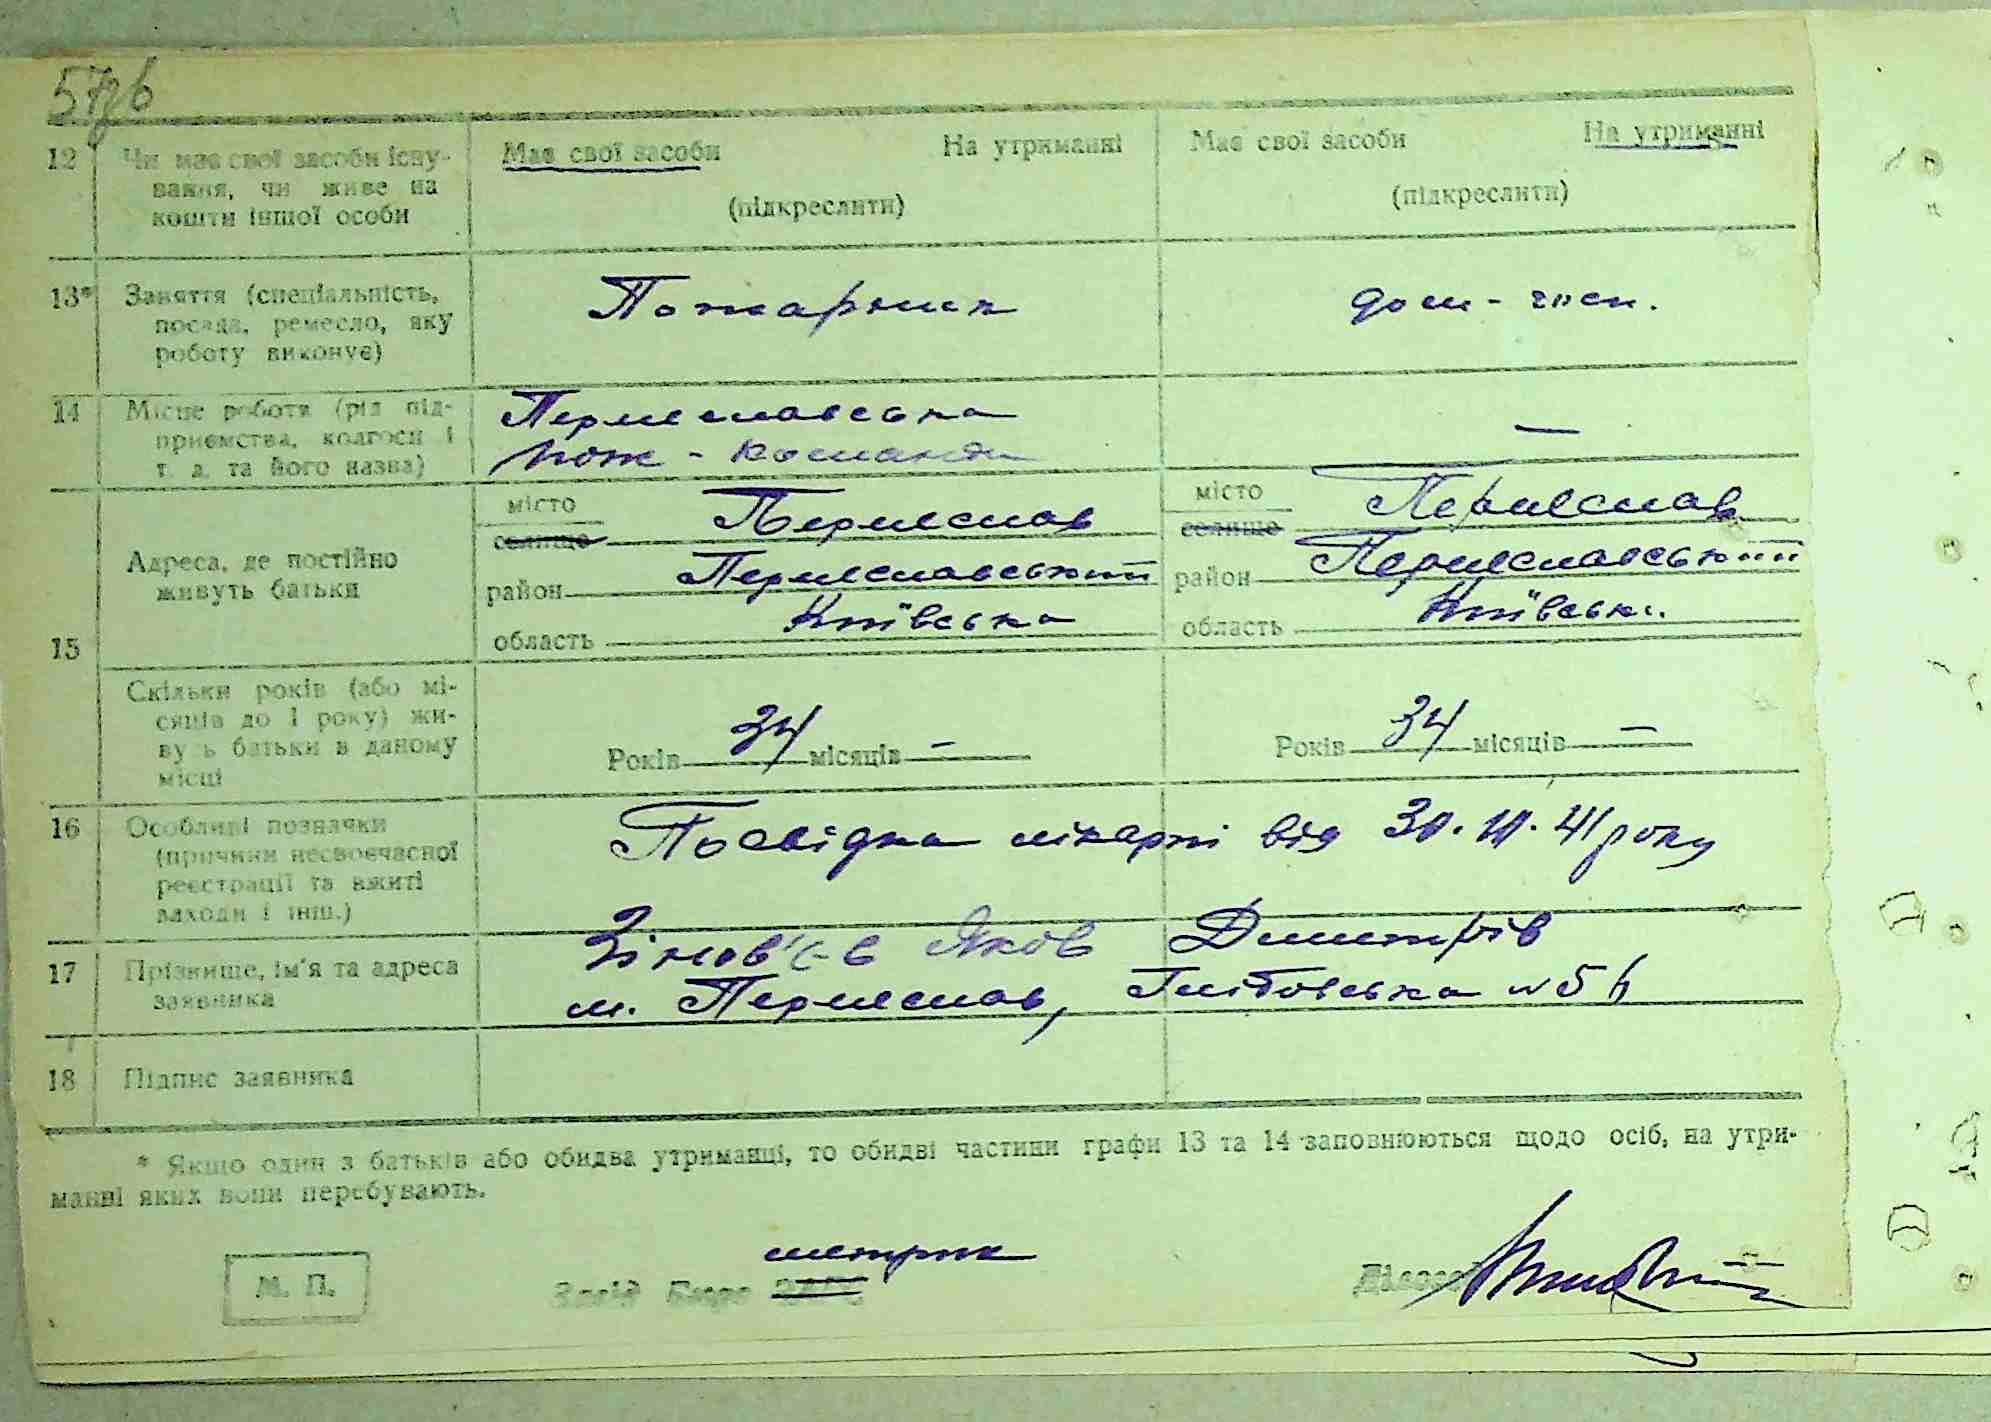 57зв
12 Чи має свої засоби існу- Має свої засоби На утриманні Має свої засоби На утриманні
вання, чи живе на (підкреслити) (підкреслити)
кошти іншої особи
13* Заняття (спеціальність, Пожарник дом-госп.
посада, ремесло, яку
роботу виконує)
14 Місце роботи (рід під- Переяславська —
приємства, колгосп і пож-команда
т. д. та його назва)
місто Переяслав місто Переяслав
селище селище
Адреса, де постійно район Переяславський район Переяславський
живуть батьки
15 область Київська область Київськ.
Скільки років (або мі-
сяців до 1 року) жи-
ву ь батьки в даному Років 34 місяців — Років 34 місяців —
місці
16 Особливі позначки Посвідка лікарні від року
(причини несвоєчасної
реєстрації та вжиті
заходи і інш.)
17 Прізвище, ім'я та адреса Зінов'єв Яков Дмитрів
заявника м. Переяслав, №56
18 Підпис заявника
* Якщо один з батьків або обидва утриманці, то обидві частини графи 13 та 14 заповнюються щодо осіб, на утри-
манні яких вони перебувають.
метрик
М. П. Завід Бюро ЗАГС Діловод